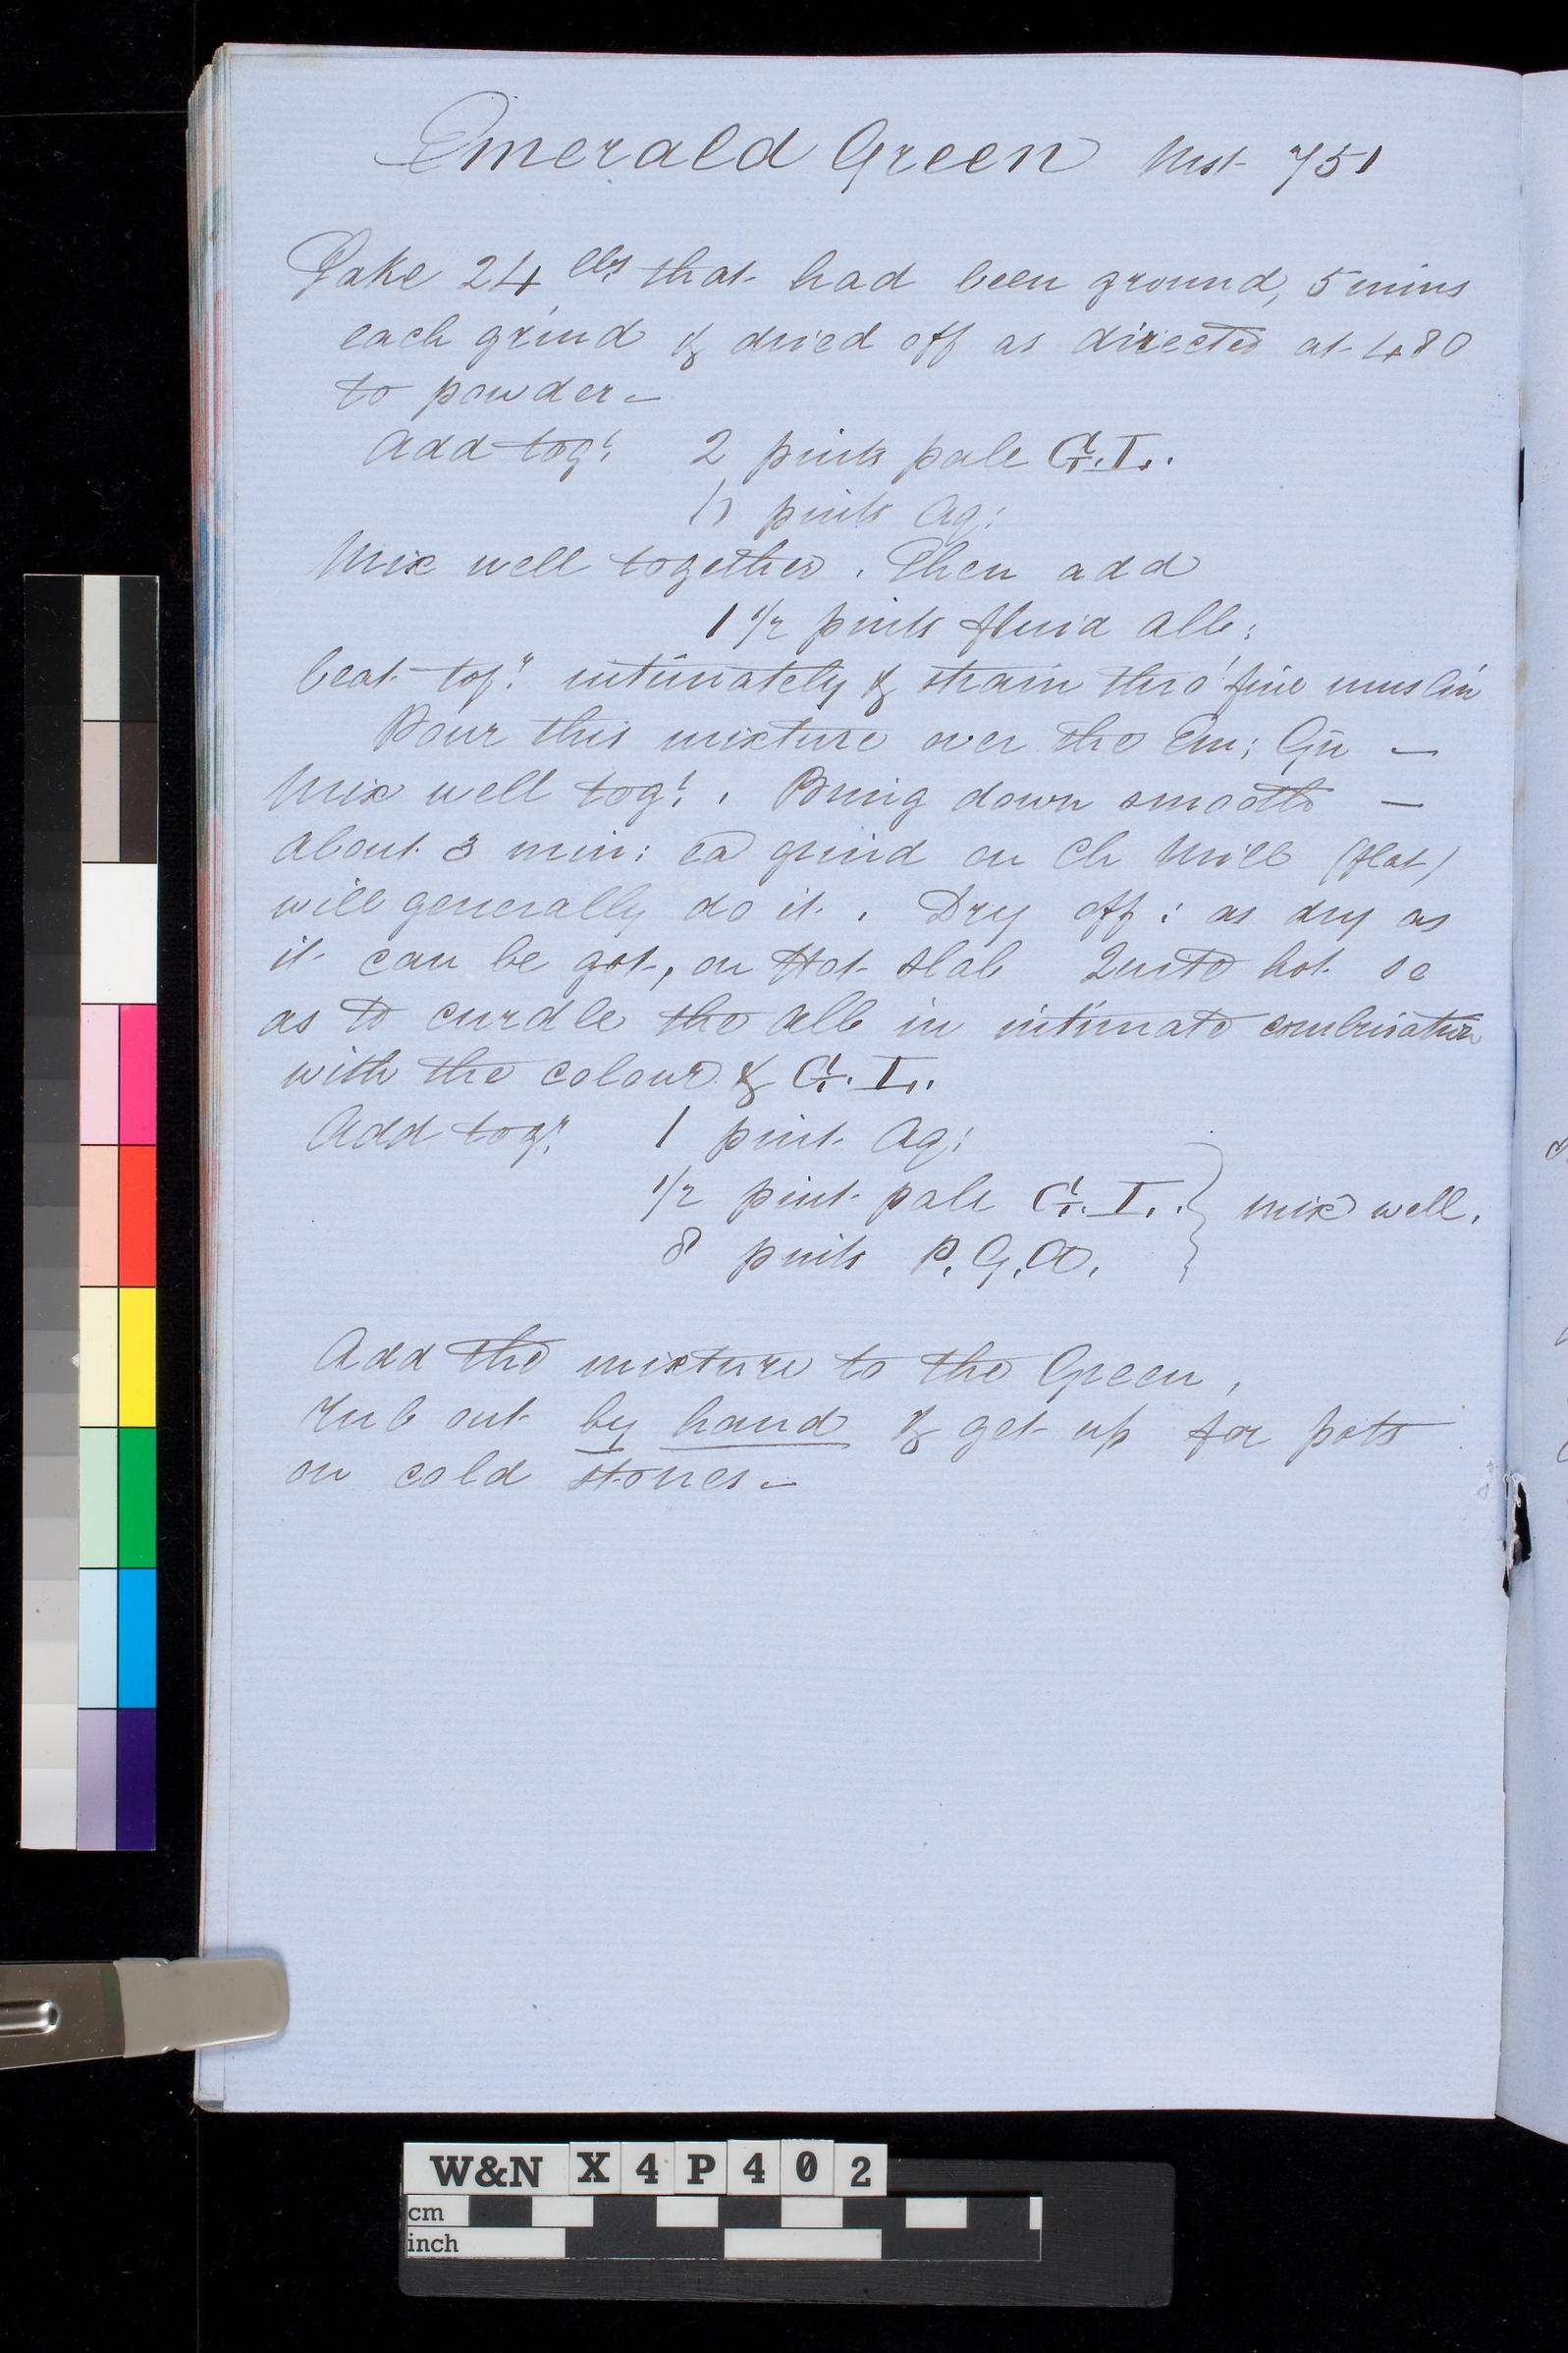 Emerald Green Mst 751
Take 24 lbs that had been ground, 5 mins
each grind & dried off as directed at 480
to powder -
Add togr. 2 pints pale G.I.
pints Aq:
Mix well together. Then add
1 1/2 pints fluid alb:
beat togr. intimately & strain thro' fine muslin
Pour this mixture over the Em: Gn —
Mix well togr. . Bring down smooth —
about 3 min: ea grind on Ch Mill (flat)
will generally do it . Dry off : as dry as
it can be got, on Hot Slab Quite hot so
as to curdle the alb in intimate combination
with the colour & G.I.
Add togr. 1 pint Aq:
1/2 pint pale G.I. } mix well.
8 pints P.G.A.
Add the mixture to the Green,
rub out by hand & get up for pots
on cold stones -
W&N X4P402
cm
inch